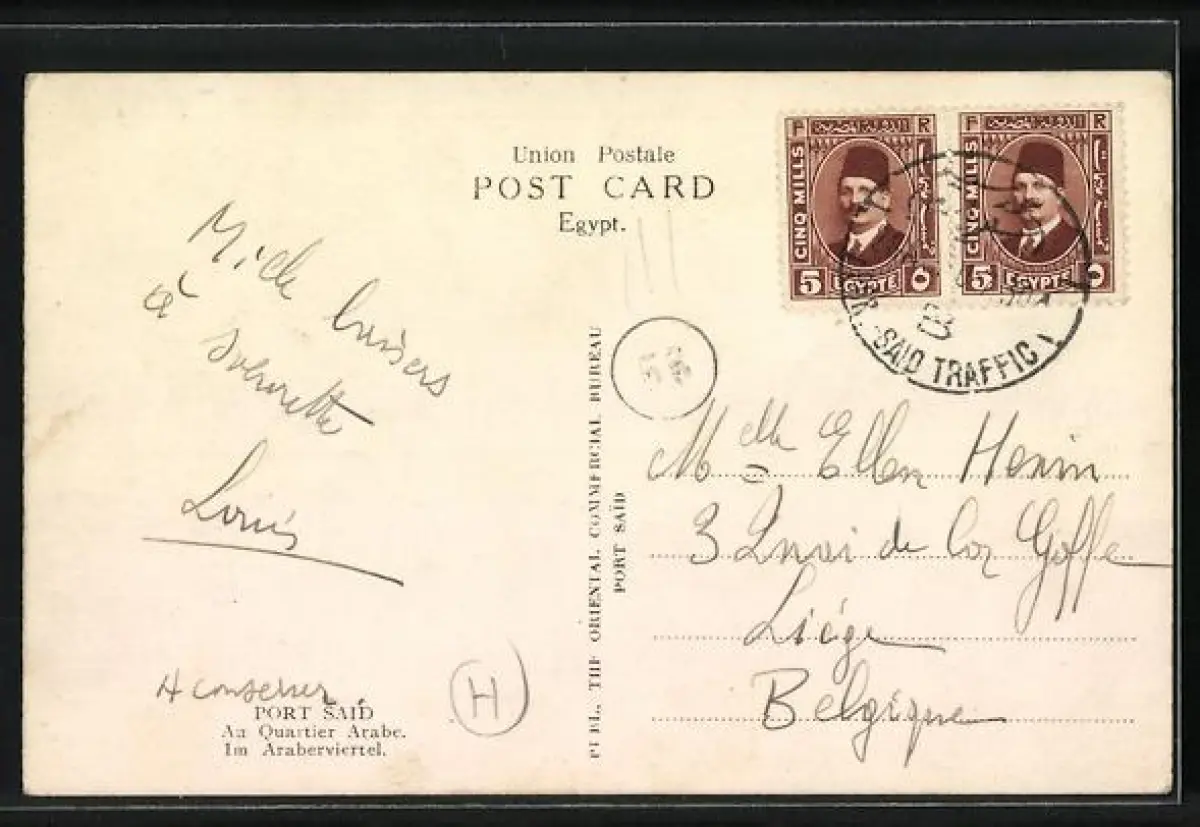 Union Postale
POST CARD
Egypt.
F R
CINQ MILLS
5 EGYPTE ٥
F R
CINQ MILLS
5 EGYPTE ٥
SAID TRAFFIC
baisers
à
Louis
A conserver
PORT SAID
Au Quartier Arabe.
Im Araberviertel.
H
PUBL. THE ORIENTAL COMMERCIAL BUREAU
PORT SAÏD
Melle Ellen Henin
3 Quai de la Goffe
Liége
Belgique